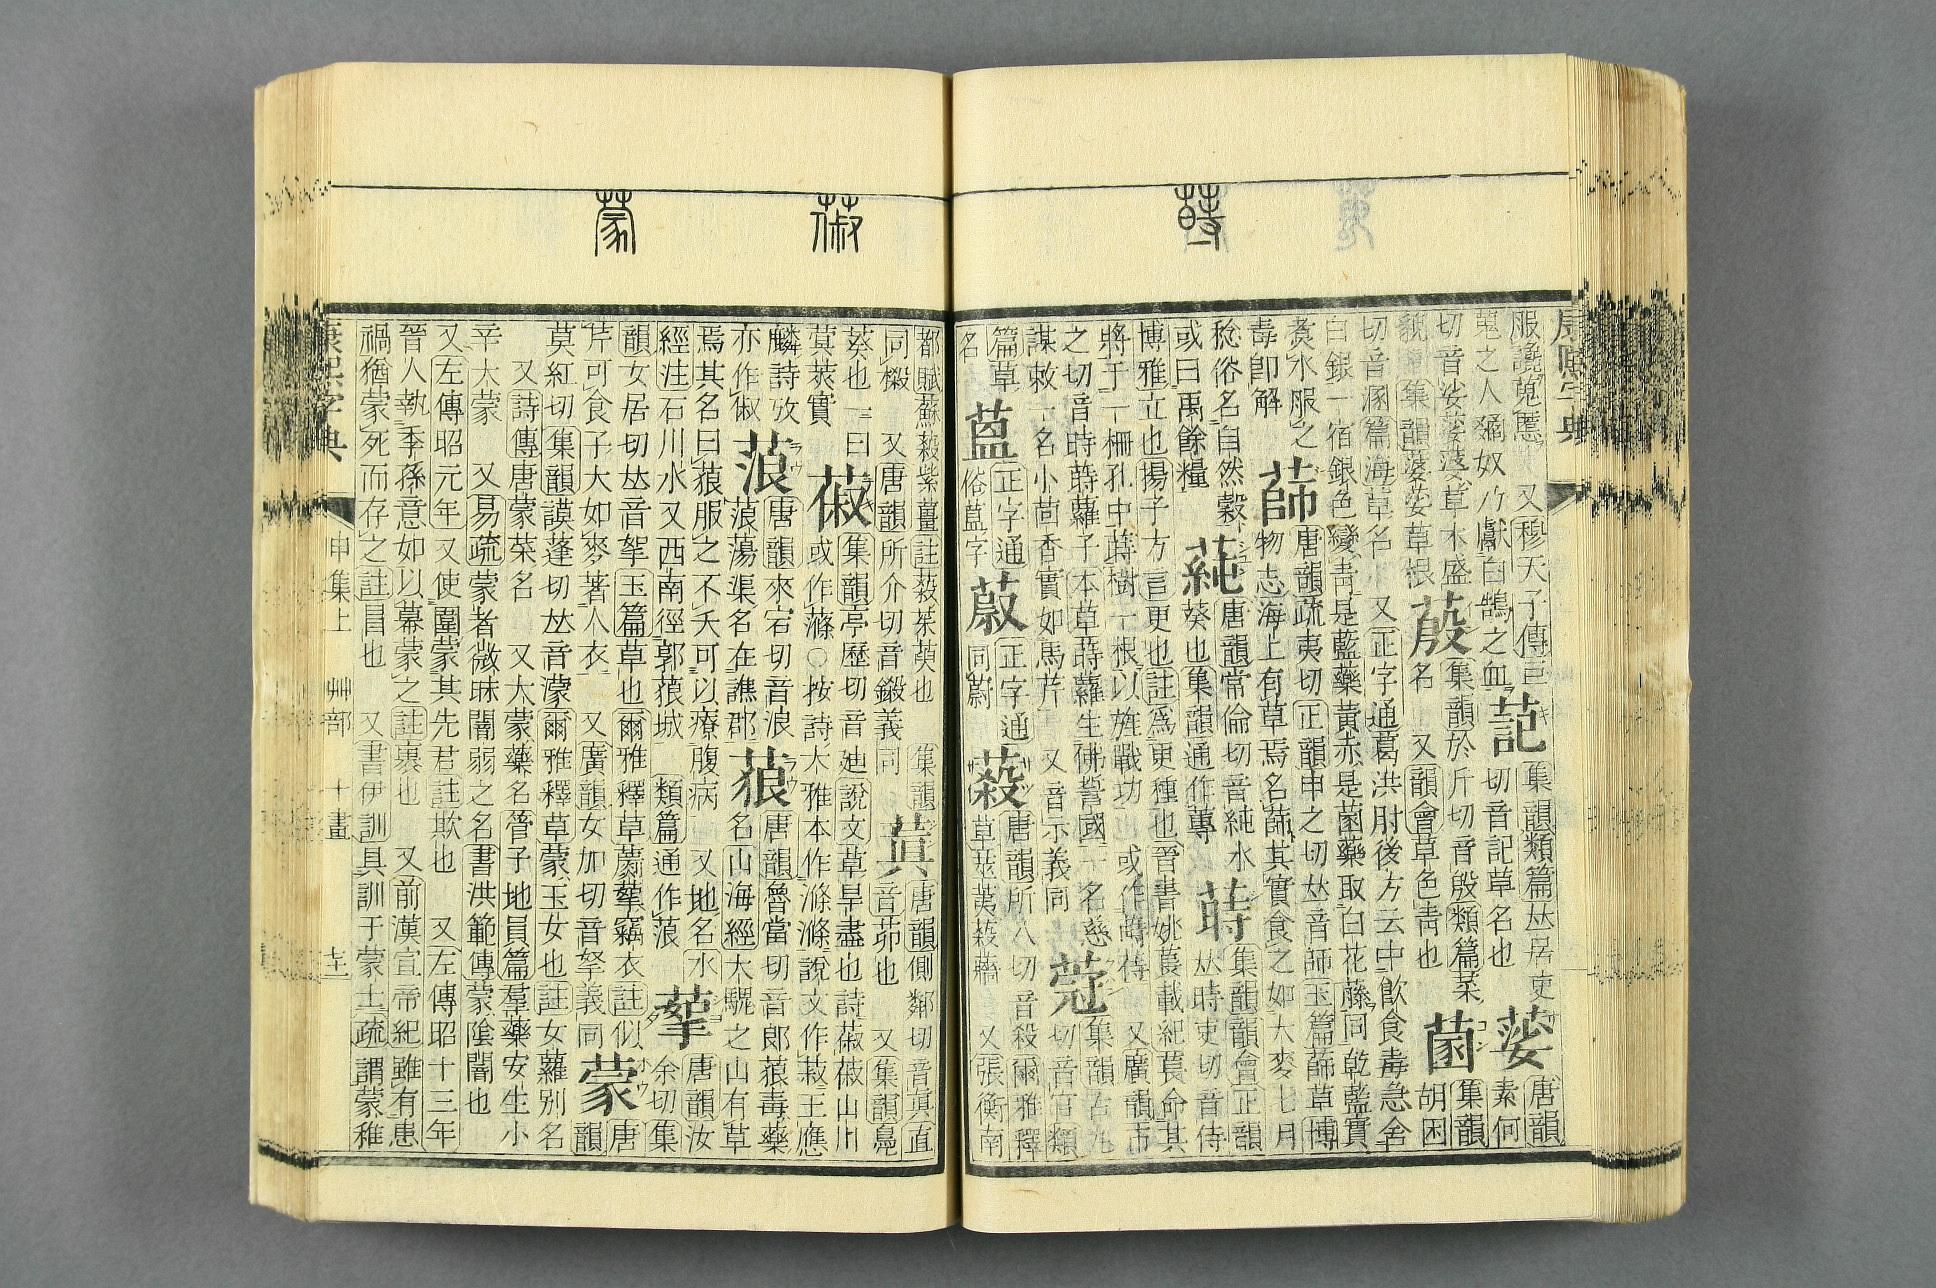 蒔
服讒蒐慝 又穆天子傳巨
蒐之人𤡪奴乃獻白鵠之血 𦶯 集韻類篇𠀤居吏切音記草名也 蔢 唐韻素何
切音娑蔢蔢草木盛貌 集韻蔢娑草根 蒑 集韻於斤切音殷類篇菜名 又韻會草色靑也 蔨 集韻胡困
切音溷篇海草名 又正字通葛洪肘後方云中飮食毒急舍
白銀一宿銀色變靑是藍藥黃赤是菌藥取白花藤同乾藍實
煑水服之毒卽解 蒒 唐韻疏夷切正韻申之切𠀤音師玉篇蒒草博
物志海上有草焉名蒒其實食之如大麥七月
稔俗名自然穀或曰禹餘糧 蒓 唐韻常倫切音純水葵也集韻通作蓴 蒔 集韻韻會正韻𠀤時吏切音侍
博雅立也揚子方言更也註爲更種也晉書姚萇載紀萇命其
將于一柵孔中蒔樹一根以旌戰功也或作䔖待 又廣韻市
之切音時蒔蘿子本草蒔蘿生佛誓國一名慈
謀勑一名小茴香實如馬芹 又音示義同 蒄 集韻古丸切音官類
篇草名 蒀 正字通俗蒕字 蒑 正字通同蔚 蔱 唐韻所八切音殺爾雅釋
草莁荑蔱蘠 又張衡南
蔋 蒙
都賦蘇蔱紫薑註蔱茱萸也 集韻同樧 又唐韻所介切音鍛義同 蒖 唐韻側鄰切音眞直
音茆也 又集韻鳧
葵也 一曰萁莢實 蔋 集韻亭歷切音廸說文草旱盡也詩蔋蔋山川
或作蓧○按詩大雅本作滌滌說文作菽王應
麟詩攷亦作俶 蒗 唐韻來宕切音浪蒗蕩渠名在譙郡 蓈 唐韻魯當切音郞蒗毒藥
名山海經大騩之山有草
焉其名曰蒗服之不夭可以療腹病 又地名水
經注石川水又西南徑郭蒗城 類篇通作蒗 蒘 唐韻汝余切集
韻女居切𠀤音挐玉篇草也爾雅釋草蘮蒘竊衣註似
芹可食子大如麥著人衣 又廣韻女加切音拏義同 蒙 唐韻
莫紅切集韻謨蓬切𠀤音濛爾雅釋草蒙玉女也註女蘿別名
又詩傳唐蒙菜名 又大蒙藥名管子地員篇羣藥安生小
辛大蒙 又易疏蒙者微昧闇弱之名書洪範傳蒙陰闇也
又左傳昭元年又使圍蒙其先君註欺也 又左傳昭十三年
晉人執季孫意如以幕蒙之註裹也 又前漢宣帝紀雖有患
禍猶蒙死而存之註冒也 又書伊訓具訓于蒙士疏謂蒙稚
康熙字典 申集上 艸部 十畫